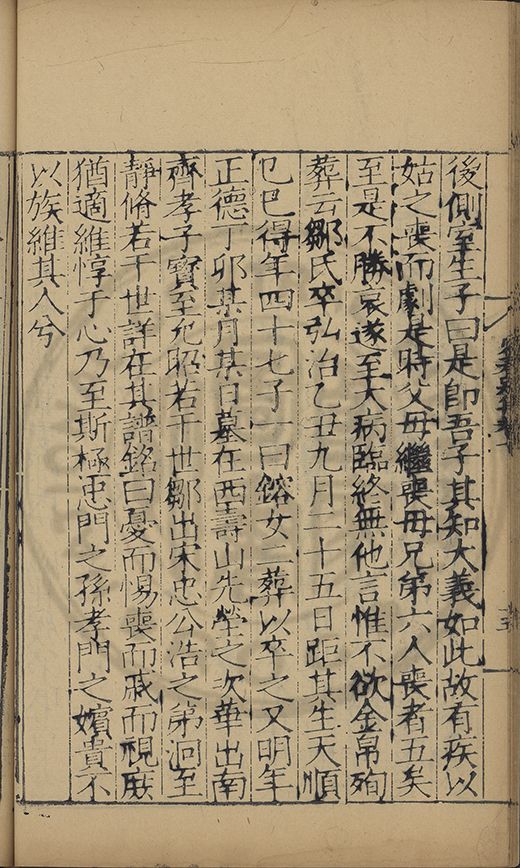 後側室生子曰是即吾子其知大義如此故有疾以
姑之喪而劇是時父母繼喪母兄弟六人喪者五矣
至是不勝哀遂至大病臨終無他言惟不欲金帛殉
葬云鄒氏卒弘治乙丑九月二十五日距其生天順
己巳得年四十七子一曰鎔女二葬以卒之又明年
正德丁卯某月某日墓在西壽山先塋之次華出南
齊孝子寶至允昭若干世鄒出宋忠公浩之弟洄至
靜脩若干世詳在其譜銘曰憂而惕喪而戚而視厥
猶適維惇于心乃至斯極忠門之孫孝門之嬪貴不
以族維其人兮